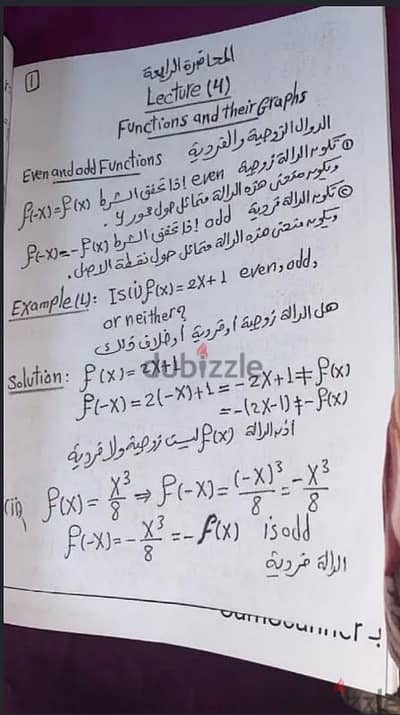 1
المحاضرة الرابعة
Lecture (4)
Functions and their Graphs
Even and odd Functions الدوال الزوجية والفردية
① تكون الدالة زوجية even إذا تحقق الشرط f(-x)=f(x)
ويكون منحنى هذه الدالة متماثل حول محور y.
② تكون الدالة فردية odd إذا تحقق الشرط f(-x)=-f(x)
ويكون منحنى هذه الدالة متماثل حول نقطة الاصل.
Example (1): Is (i) f(x)=2x+1 even, odd,
or neither?
هل الدالة زوجية أو فردية أو خلاف ذلك
dubizzle
Solution: f(x)=2x+1
f(-x)=2(-x)+1=-2x+1≠f(x)
=-(2x-1)≠-f(x)
أذن الدالة f(x) ليست زوجية ولا فردية
(ii) f(x)=x³/8 ⇒ f(-x)=(-x)³/8=-x³/8
f(-x)=-x³/8=-f(x) is odd
الدالة فردية
CamScanner بـ